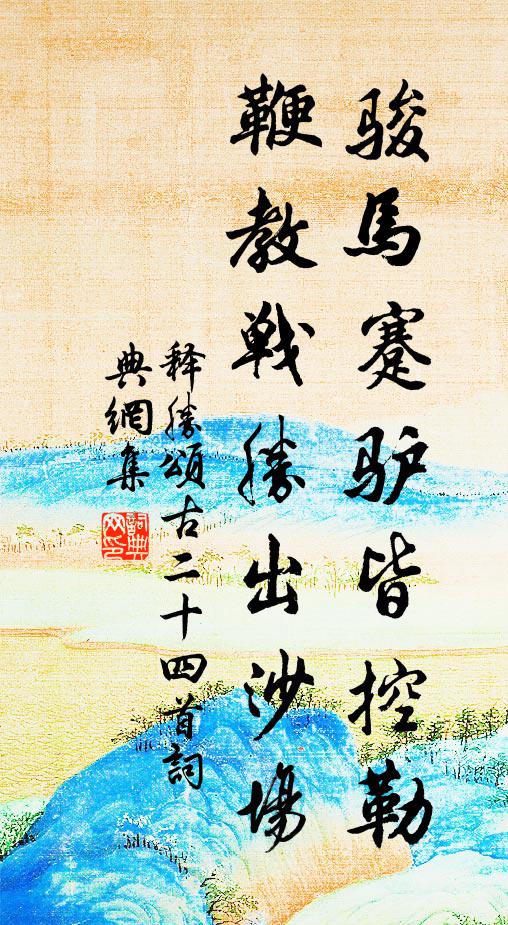 骏馬蹇驴皆控勒
鞭教戦勝出沙場
释勝頌古二十四首詞
典網集
詞典
网